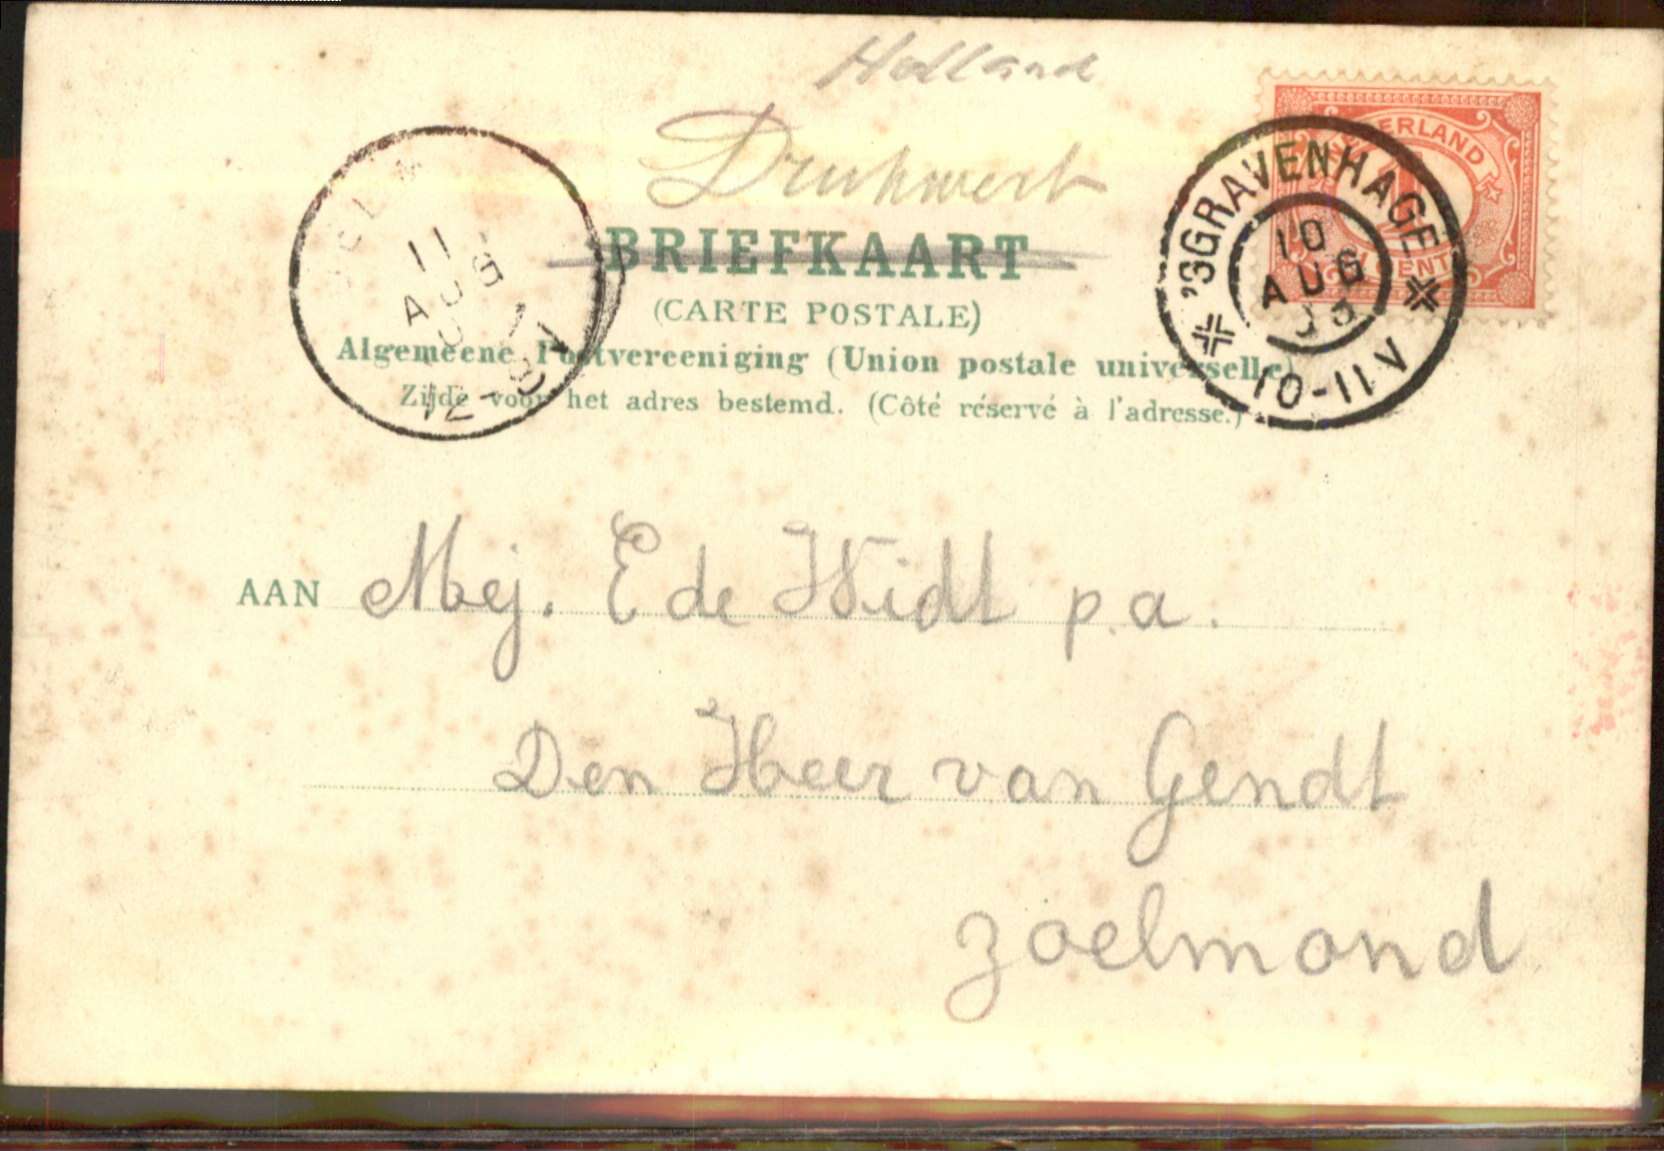 Holland
Drukwerk
BRIEFKAART
(CARTE POSTALE)
Algemeene Postvereeniging (Union postale universelle)
Zijde voor het adres bestemd. (Côté réservé à l'adresse.)
'SGRAVENHAGE
10
AUG
03
10-11 V
11
AUG
12-
AAN Mej. E de Widt p.a.
Den Heer van Gendt
Zoelmond